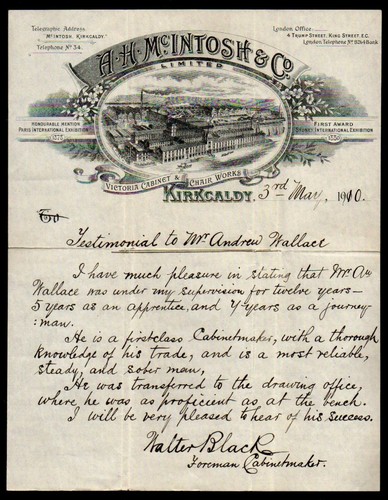 Telegraphic Address,
"McINTOSH, KIRKCALDY."
Telephone No 34.
London Office
4 TRUMP STREET, KING STREET, E.C.
London Telephone No
A.H. McINTOSH & Co.
LIMITED
HONOURABLE MENTION
PARIS INTERNATIONAL EXHIBITION
1878
FIRST AWARD
SYDNEY INTERNATIONAL EXHIBITION
VICTORIA CABINET & CHAIR WORKS
KIRKCALDY, 3rd May, 1910.
Testimonial to Mr Andrew Wallace
I have much pleasure in stating that Mr. Aw
Wallace was under my supervision for twelve years—
5 years as an apprentice, and 7-years as a journey-
:man.
He is a firstclass Cabinetmaker, with a thorough
knowledge of his trade, and is a most reliable,
steady, and sober man,
He was transferred to the drawing office,
where he was as proficient as at the bench.
I will be very pleased to hear of his success.
Walter Black
Foreman Cabinetmaker.